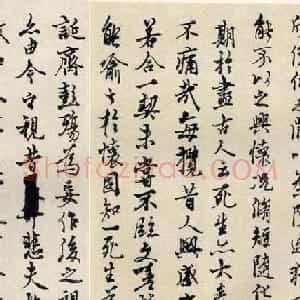 能不以之興懷況脩短隨化
期於盡古人云死生亦大
不痛哉每攬昔人興感
若合一契未嘗不臨文嗟
能喻之於懷固知一死生
誕齊彭殤爲妄作後之視
亦由今之視昔悲夫